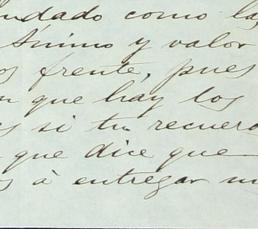 ndado como la
ánimo y valor
os frente, pues
n que hay los
es si tu recuerd
que dice que
os à entregar un